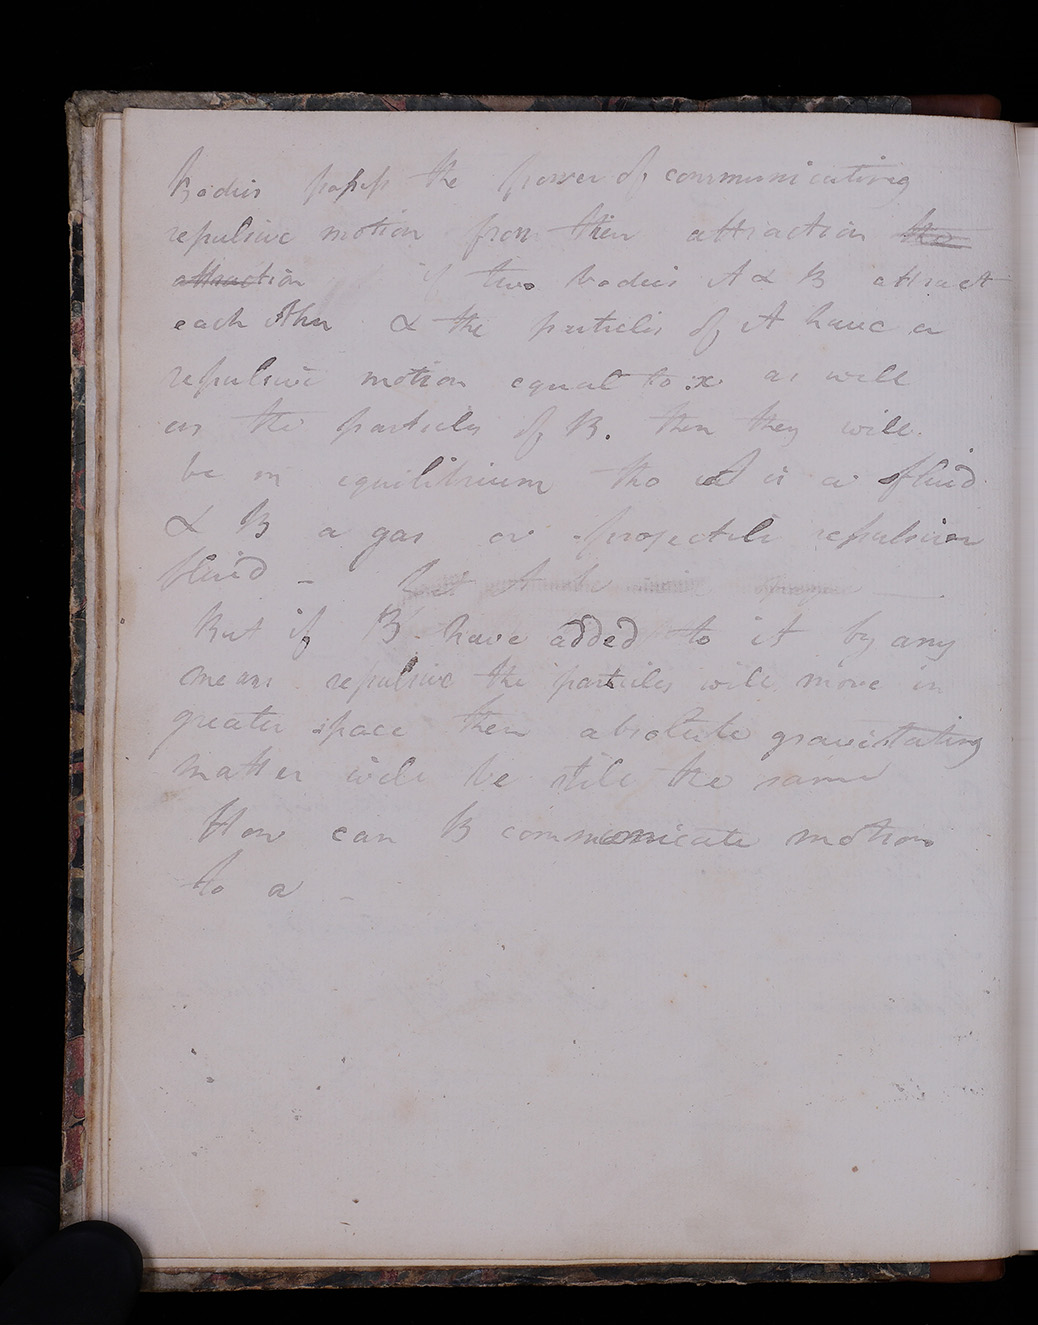 Bodies possess the power of communicating
repulsive motion from their attraction the
attraction if two bodies A & B attract
each other & the particles of A have a
repulsive motion equal to x as well
as the particles of B. then they will
be in equilibrium tho A is a fluid
& B a gas or projectile repulsion
fluid - Let A be
But if B have added to it by any
means repulsive the particles will move in
greater space then absolute gravitating
matter will be still the same
How can B communicate motion
to a -